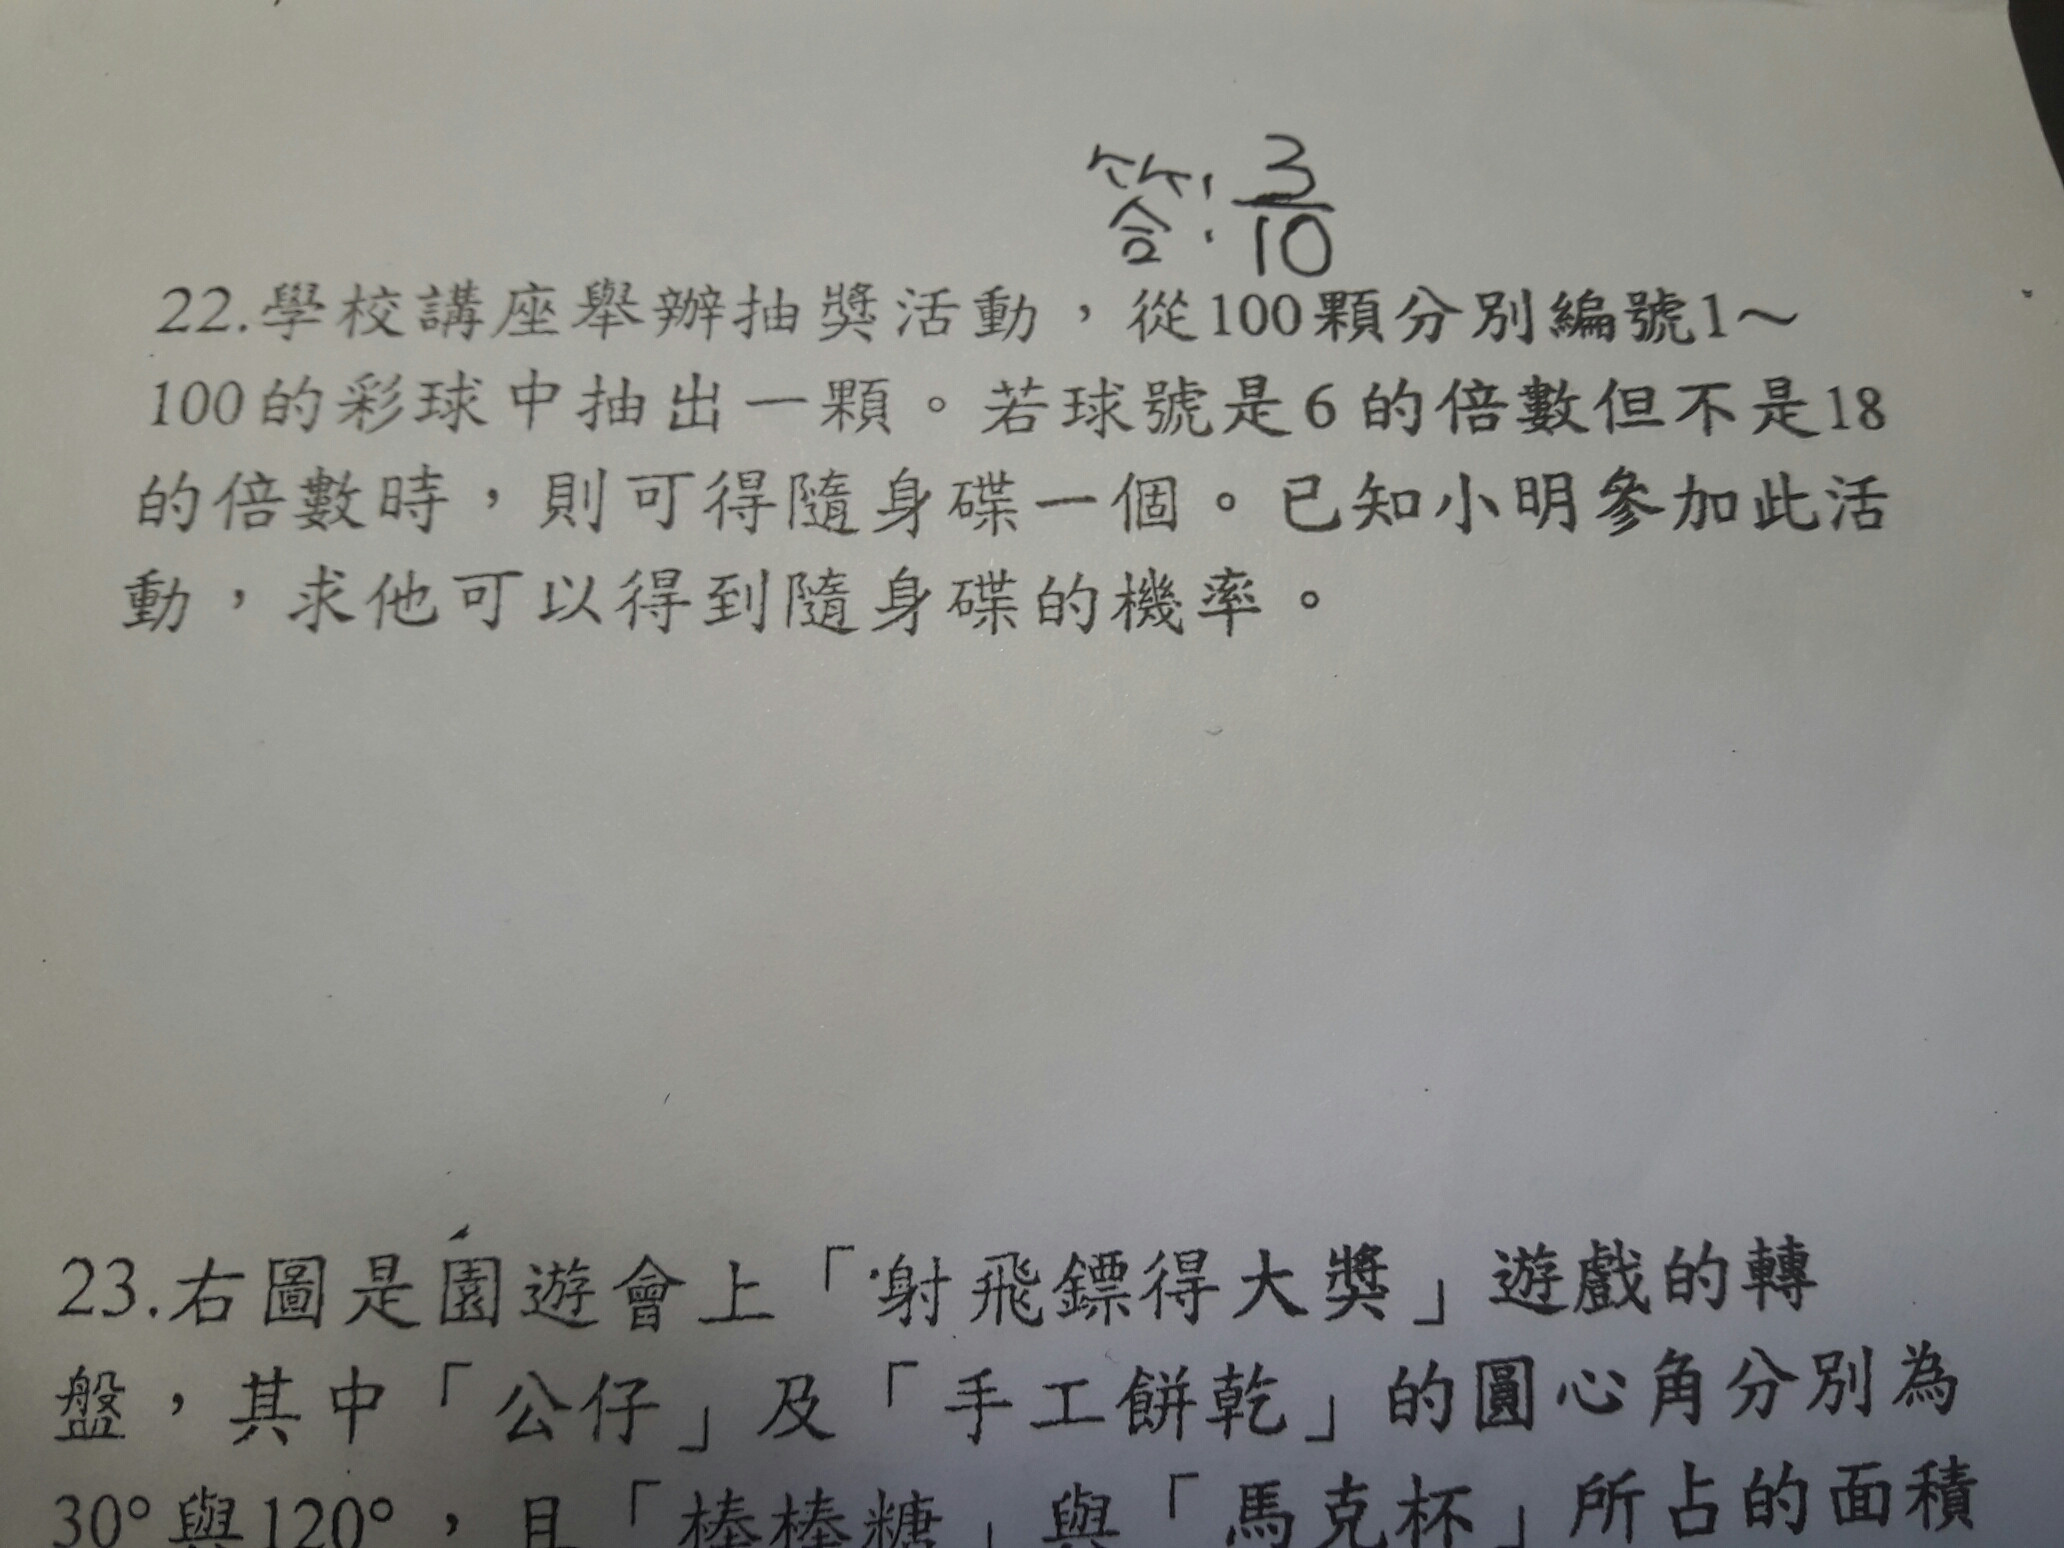 答:3/10
22.學校講座舉辦抽獎活動，從100顆分別編號1～
100的彩球中抽出一顆。若球號是6的倍數但不是18
的倍數時，則可得隨身碟一個。已知小明參加此活
動，求他可以得到隨身碟的機率。
23.右圖是園遊會上「射飛鏢得大獎」遊戲的轉
盤，其中「公仔」及「手工餅乾」的圓心角分別為
30°與120°，且「棒棒糖」與「馬克杯」所占的面積